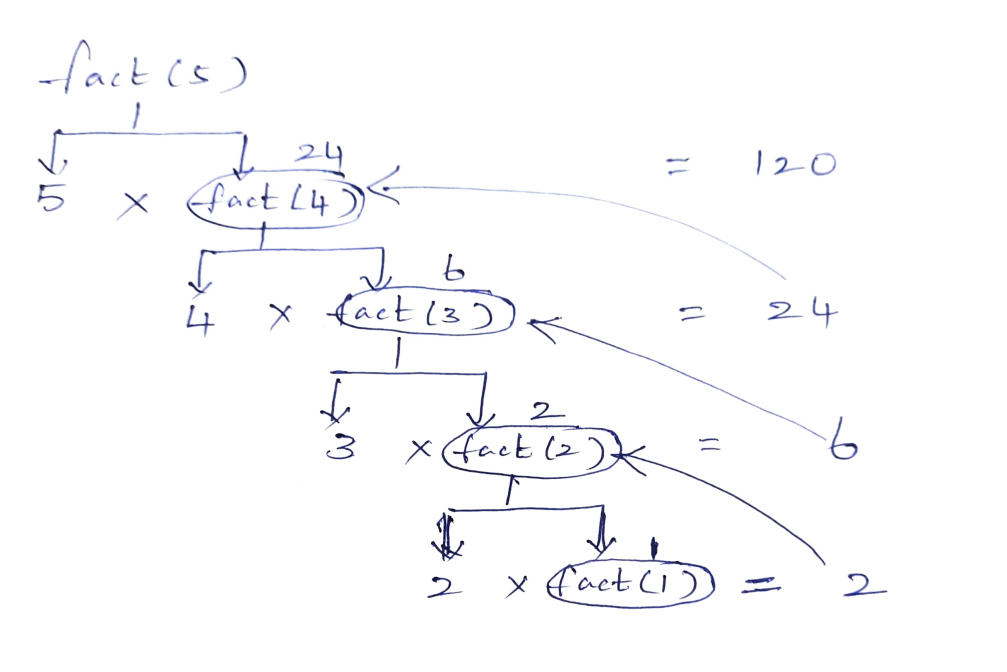 fact(5)
24
5 × fact(4) = 120
6
4 × fact(3) = 24
2
3 × fact(2) = 6
1
2 × fact(1) = 2